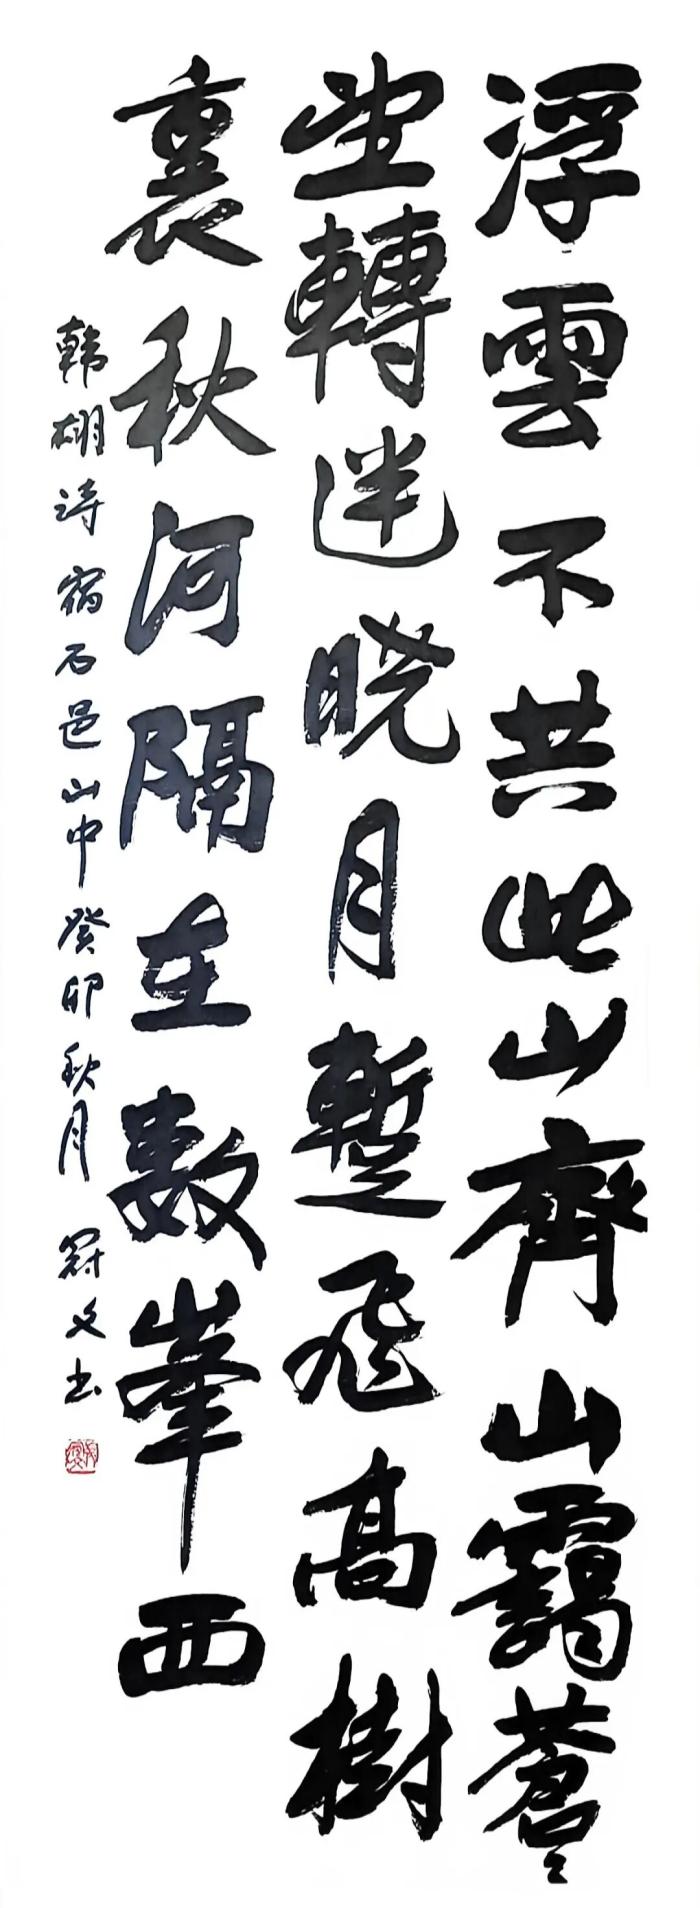 浮雲不共此山齊山靄蒼〻
望轉迷曉月暫飛高樹
裏秋河隔在數峯西
韩翃诗宿石邑山中癸卯秋月冠文书